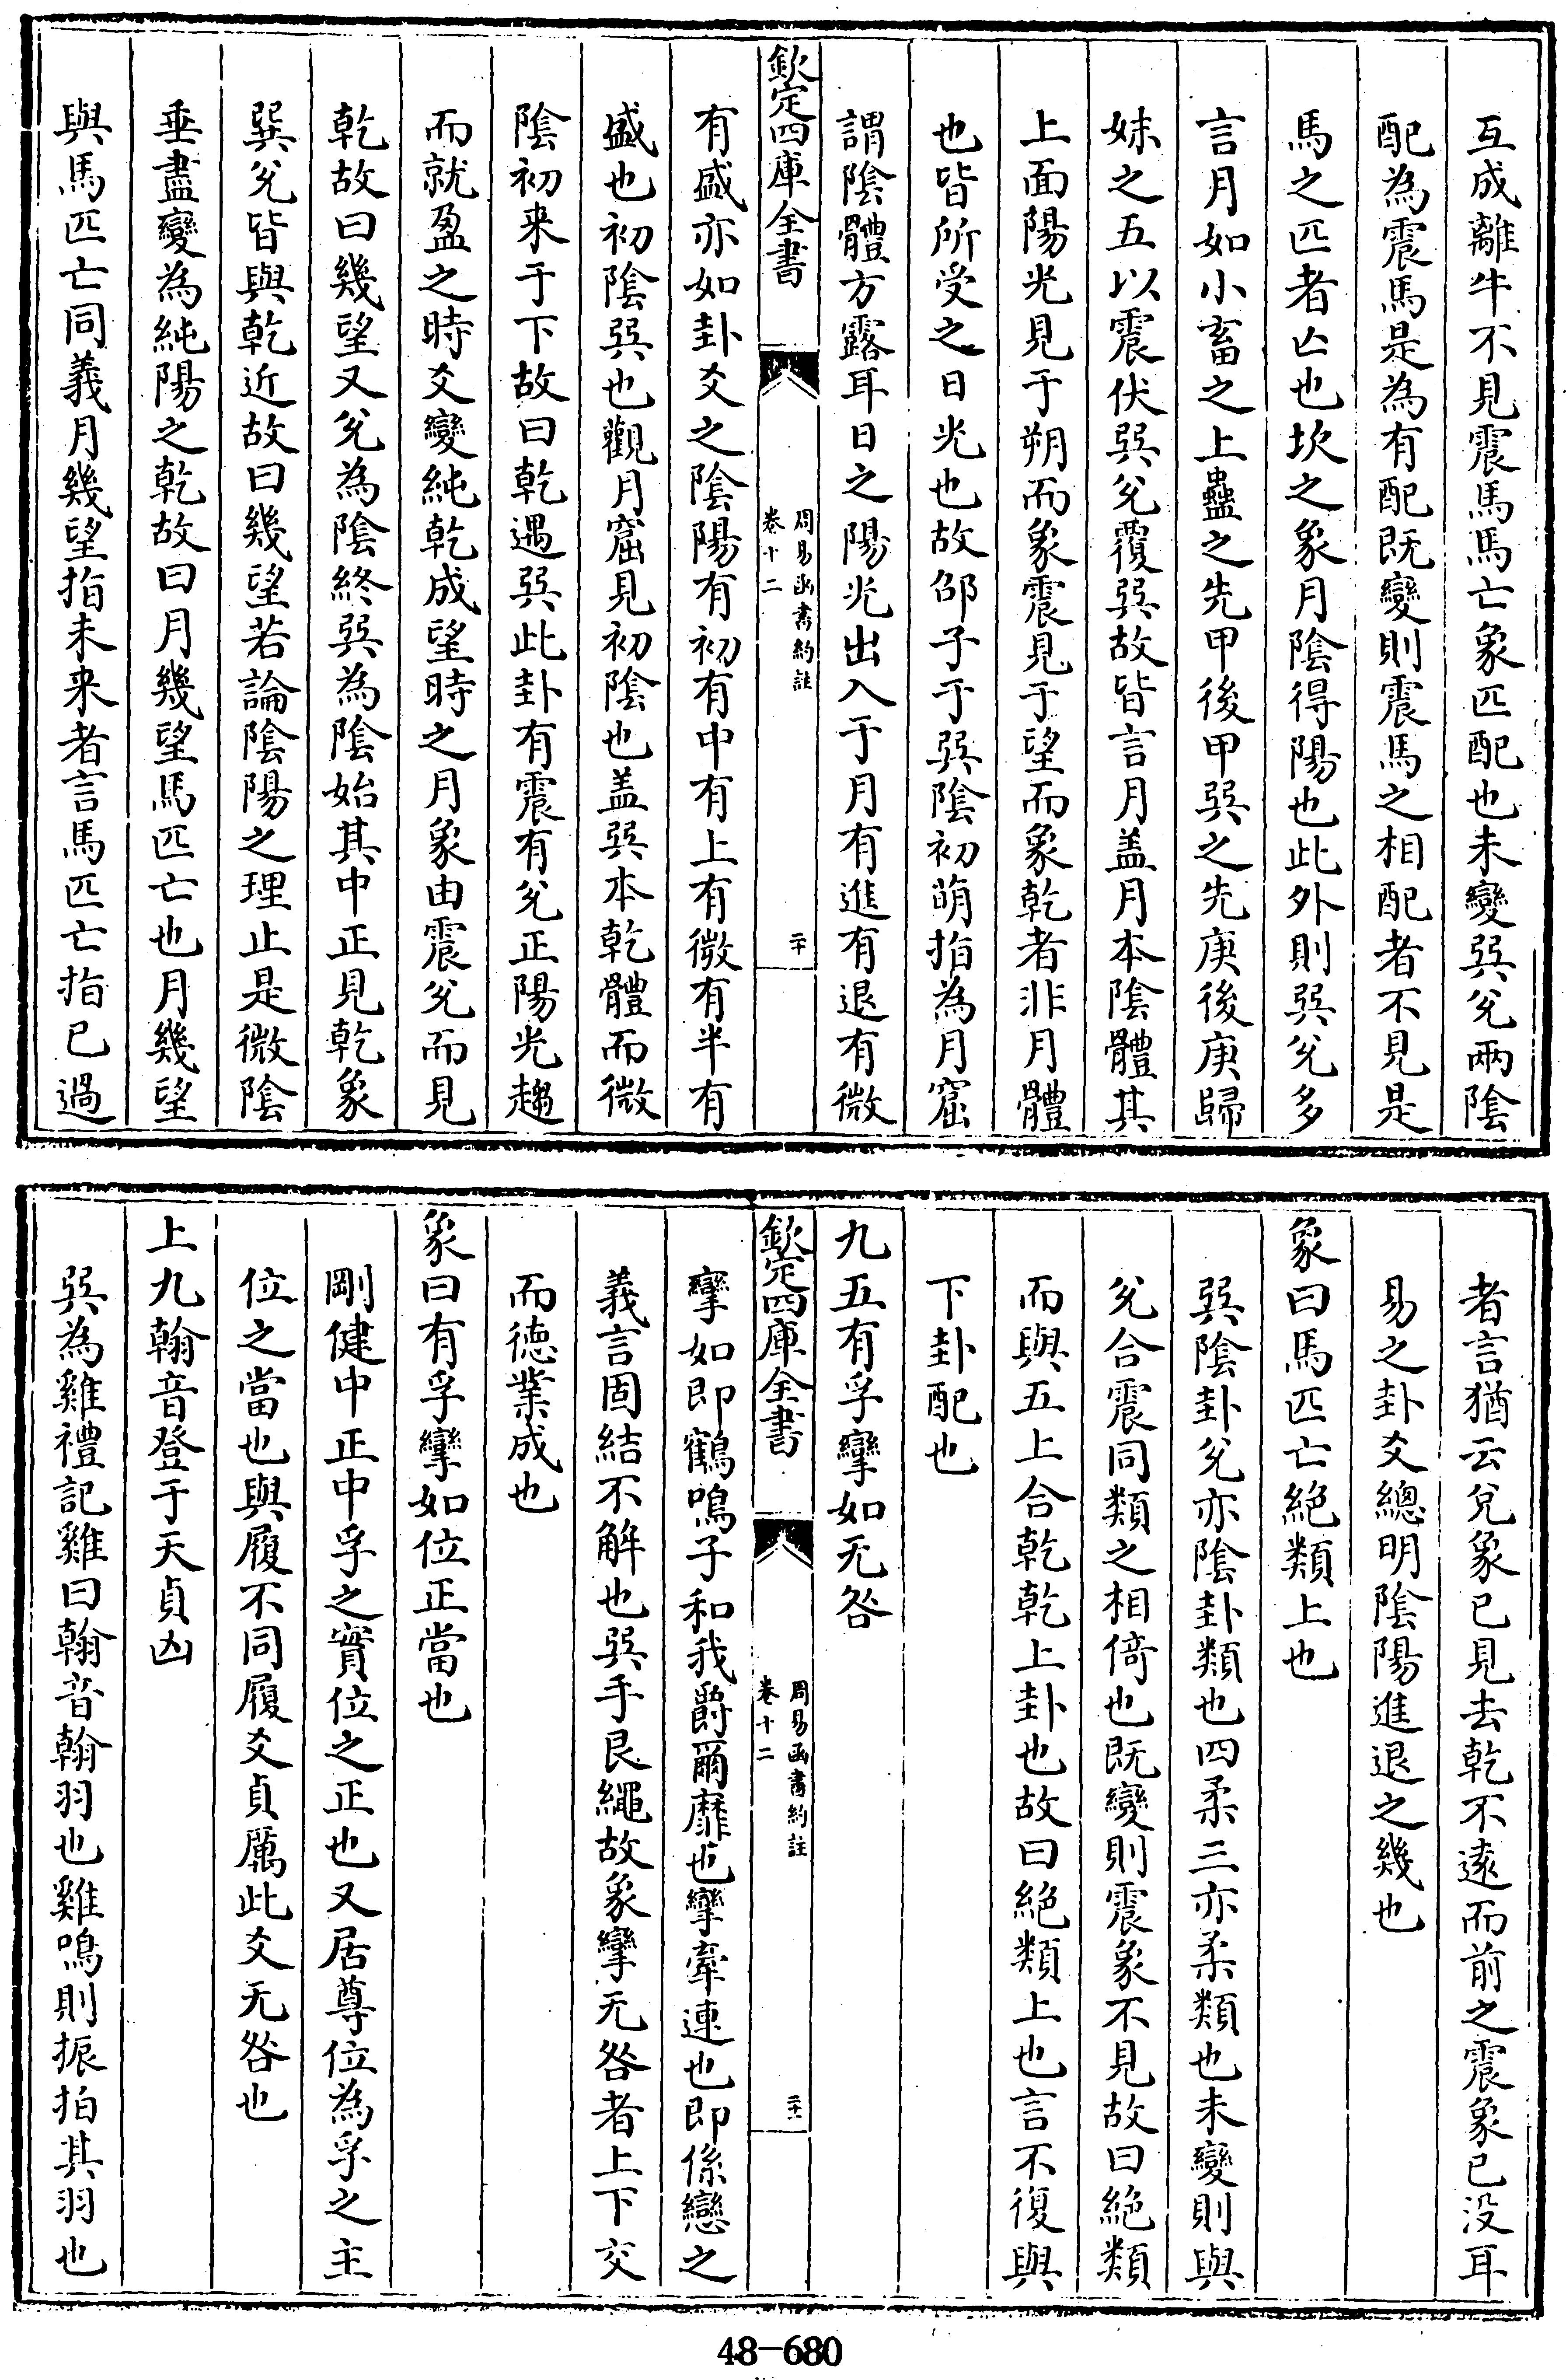 互成離牛不見震馬馬亡象匹配也未變巽兊兩陰
配為震馬是為有配既變則震馬之相配者不見是
馬之匹者亡也坎之象月陰得陽也此外則巽兊多
言月如小畜之上蠱之先甲後甲巽之先庚後庚歸
妹之五以震伏巽兊覆巽故皆言月盖月本陰體其
上面陽光見于朔而象震見于望而象乾者非月體
也皆所受之日光也故邵子于巽陰初萌指為月窟
謂陰體方露耳日之陽光出入于月有進有退有微
欽定四庫全書
周易函書約註
卷十二
二十
有盛亦如卦爻之陰陽有初有中有上有微有半有
盛也初陰巽也觀月窟見初陰也盖巽本乾體而微
陰初来于下故曰乾遇巽此卦有震有兊正陽光趨
而就盈之時爻變純乾成望時之月象由震兊而見
乾故曰幾望又兊為陰終巽為陰始其中正見乾象
巽兊皆與乾近故曰幾望若論陰陽之理止是微陰
垂盡變為純陽之乾故曰月幾望馬匹亡也月幾望
與馬匹亡同義月幾望指未来者言馬匹亡指已過
者言猶云兊象已見去乾不逺而前之震象已没耳
易之卦爻總明陰陽進退之幾也
象曰馬匹亡絶類上也
巽陰卦兊亦陰卦類也四柔三亦柔類也未變則與
兊合震同類之相倚也既變則震象不見故曰絶類
而與五上合乾乾上卦也故曰絶類上也言不復與
下卦配也
九五有孚攣如无咎
欽定四庫全書
周易函書約註
卷十二
二十一
攣如即鶴鳴子和我爵爾靡也攣牽連也即係戀之
義言固結不解也巽手艮繩故象攣无咎者上下交
而徳業成也
象曰有孚攣如位正當也
剛健中正中孚之實位之正也又居尊位為孚之主
位之當也與履不同履爻貞厲此爻无咎也
上九翰音登于天貞凶
巽為雞禮記雞曰翰音翰羽也雞鳴則振拍其羽也
48-680